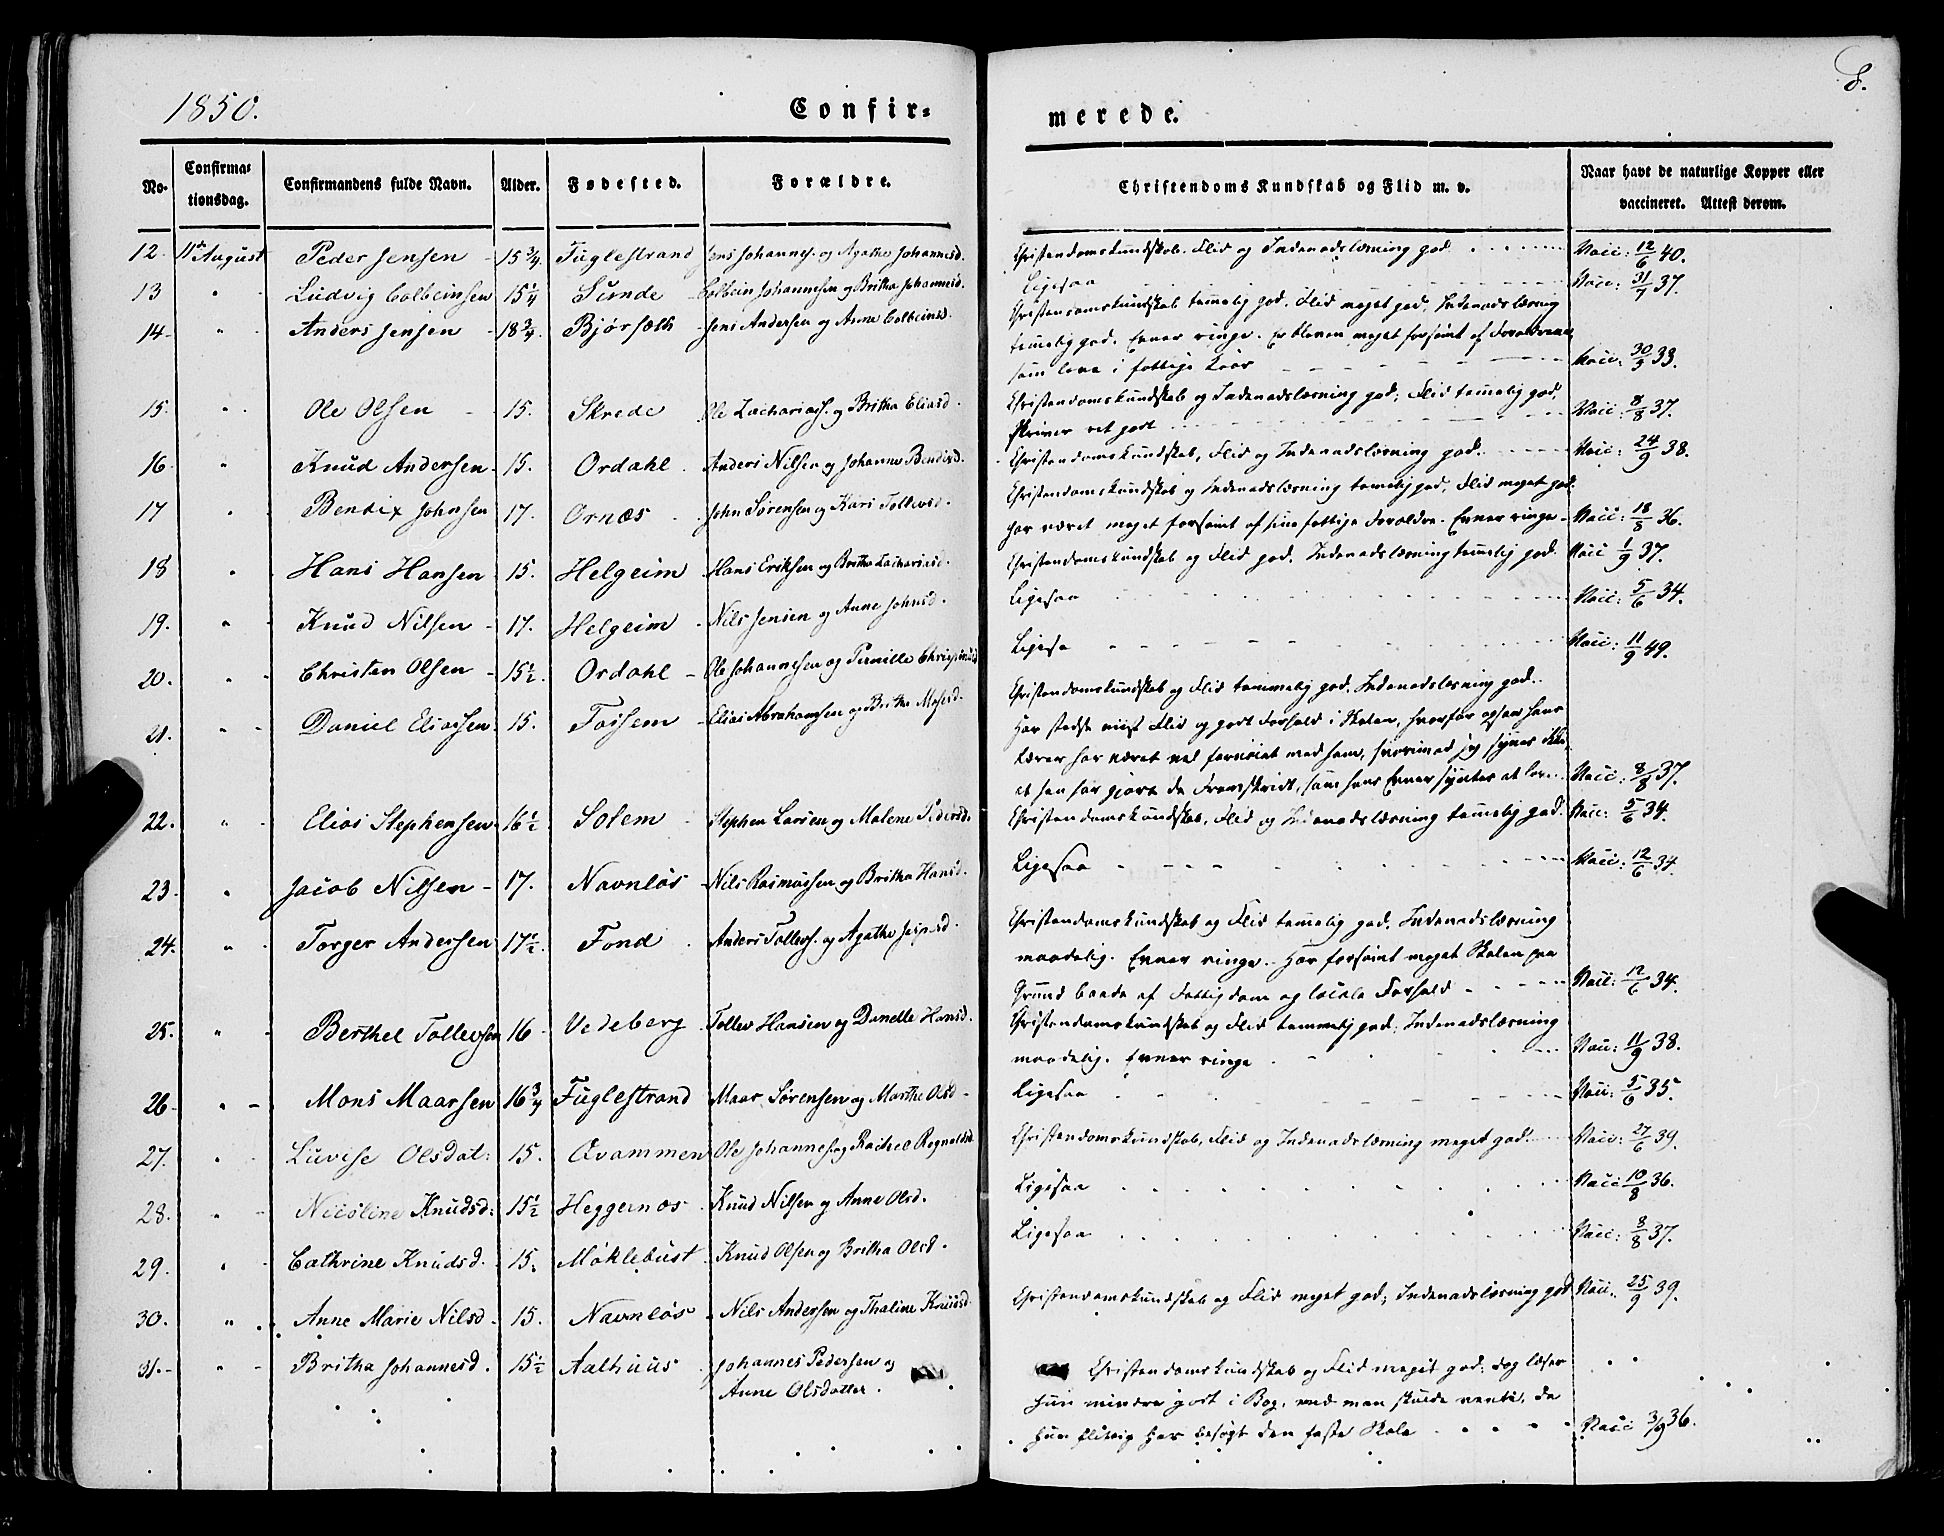 8.
1850.
Confir- merede.
No. Confirmationsdag. Confirmandens fulde Navn. Alder. Fødested. Forældre. Christendoms Kundskab og Flid m. v. Naar havt de naturlige Kopper eller vaccineret. Attest derom.
12. 11te August Peder Jensen 15 3/4. Fuglestrand Jens Johannes. og Agathe Johannesd. Christendomskundskab. Flid og Indenadslæsning god Vacc: 12/6 40.
13 " Ludvig Colbeinsen 15 1/4 Sunde Colbein Johannesen og Britha Johannesd. Ligesaa Vacc: 31/7 37.
14 " Anders Jensen 18 3/4. Bjørsæth Jens Andersen og Anne Colbeinsd. Christendomskundskab temmelig god. Flid meget god, Indenadslæsning
temmelig god. Evner ringe. Er bleven meget forsømt af Forældrene,
som leve i fattige Kaar Vacc: 30/9 33.
15. " Ole Olsen 15. Skrede Ole Zachariass. og Britha Eliasd. Christendomskundskab og Indenadslæsning god; Flid temmelig god,
skriver ret godt Vacc: 8/8 37.
16 " Knud Andersen 15. Ordahl Anders Nilsen og Johanne Bendixd. Christendomskundskab, Flid og Indenadslæsning god. Vacc: 24/9 38.
17 " Bendix Johnsen 17. Ornæs John Sørensen og Kari Tollevsd. Christendomskundskab og Indenadslæsning temmelig god, Flid meget god.
har været meget forsømt af sine fattige Forældre. Evner ringe Vacc: 18/8 36.
18 " Hans Hansen 15. Helgeim Hans Eriksen og Britha Zachariasd. Christendomskundskab og Flid god. Indenadslæsning temmelig god. Vacc 1/9 37.
19. " Knud Nilsen 17. Helgeim Nils Jensen og Anne Johnsd. Ligesaa Vacc: 5/6 34.
20. " Christen Olsen 15 1/2. Ordahl Ole Johannesen og Pernille Ligesaa Vacc: 11/9 49.
21. " Daniel Eliassen 15. Fossem Elias Abrahamsen og Britha Mosesd. Christendomskundskab og Flid temmelig god. Indenadslæsning god.
Har stedse viist Flid og godt Forhold i Skolen, hvorfor ogsaa hans
Lærer har været vel fornøiet med ham, hvorimod jeg synes ikke,
at han har gjort de Fremskridt, som hans Evner syntes at love. Vacc: 8/8 37.
22. " Elias Stephensen 16 1/2 Solem Stephen Larsen og Malene Pedersd. Christendomskundskab, Flid og Indenadslæsning temmelig god. Vacc: 5/6 34.
23 " Jacob Nilsen 17. Navnløs Nils Rasmussen og Britha Hansd. Ligesaa Vacc: 12/6 34.
24. " Torger Andersen 17 1/2. Fond Anders Tollevs. og Agathe Jespd. Christendomskundskab og Flid temmelig god. Indenadslæsning
maadelig. Evner ringe. Har forsømt meget Skolen paa
Grund baade af Fattigdom og locale Forhold Vacc: 12/6 34.
25. " Berthel Tollevsen 16 Vedeberg Tollev Hansen og Danelle Hansd. Christendomskundskab og Flid temmelig god; Indenadslæsning
maadelig. Evner ringe Vacc: 11/9 38.
26 " Mons Maarsen 16 3/4 Fuglestrand Maar Sørensen og Marthe Olsd Ligesaa Vacc: 5/6 35.
27. " Luvise Olsdat: 15. Qvammen Ole Johannes. og Rachel Regnaldsd. Christendomskundskab, Flid og Indenadslæsning meget god. Vacc: 27/6 39.
28. " Nicoline Knudsd: 15 1/2 Heggernæs Knud Nilsen og Anne Olsd. Ligesaa Vacc 10/8 36.
29. " Cathrine Knudsd. 15. Møklebust Knud Olsen og Britha Olsd. Ligesaa Vacc: 8/8 37.
30. " Anne Marie Nilsd 15. Navnløs Nils Andersen og Thaline Knudsd. Christendomskundskab og Flid meget god; Indenadslæsning god Vacc: 25/9 39.
31. " Britha Johannesd. 15 1/2 Aalhuus Johannes Pedersen og
Anne Olsdatter. Christendomskundskab og Flid meget god; dog læser
hun mindre godt i Bog, end man skulde vente, da
hun flittig har besøgt den faste Skole Vacc 3/9 36.